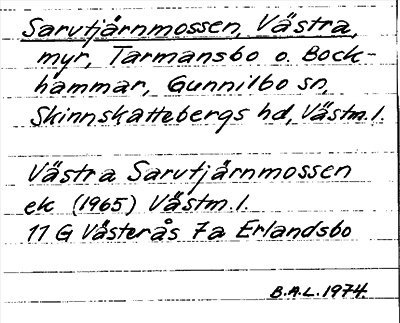 Sarvtjärnmossen, Västra,
myr, Tarmansbo o. Bock-
hammar, Gunnilbo sn,
Skinnskattebergs hd, Västm. l.
Västra Sarvtjärnmossen
ek (1965) Västm. l.
11 G Västerås 7a Erlandsbo
B.A.L. 1974.